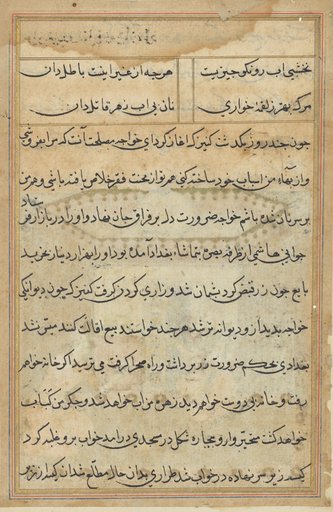 نخشبی اب رو نکو چیزیست
هرچه از غیر اینت باطل دان
مرگ بهتر ز لقمهٔ خواری
نان بی اب زهر قاتل دان
چون چند روز بگذشت کنیزک اغاز کرد ای خواجه مصلحت آنست که مرا بفروشی
و از بهاء من اسباب خود ساخته کنی هم تو از محنت فقر خلاص یافته باشی و هم من
بر سر بنده باشم خواجه ضرورت دل بر فراق جان نهاد و او را در بازار
جوانی هاشمی از طرف بصره بتماشاء بغداد آمده بود او را بهزار دینار بخرید
بایع چون زر قبض کرد پشیمان شد و زاری کردن گرفت کنیزک چون دیوانگی
خواجه بدید از و دیوانه تر شد هر چند خواستند بیع اقالت کنند میسر نشد
بغدادی بحکم ضرورت زر برداشت و راه صحرا گرفت می ترسید اگر خانه خواهم
رفت و خانه بی دوست خواهم دید زهره من اب خواهد شد و جگر من کباب
خواهد گشت متحیر وار و بیچاره شکل در مسجدی در امد خواب برو غلبه کرد
کیسه زر زیر سر نهاده در خواب شد طراری بدان حال مطلع شد ان کیسه از زیر